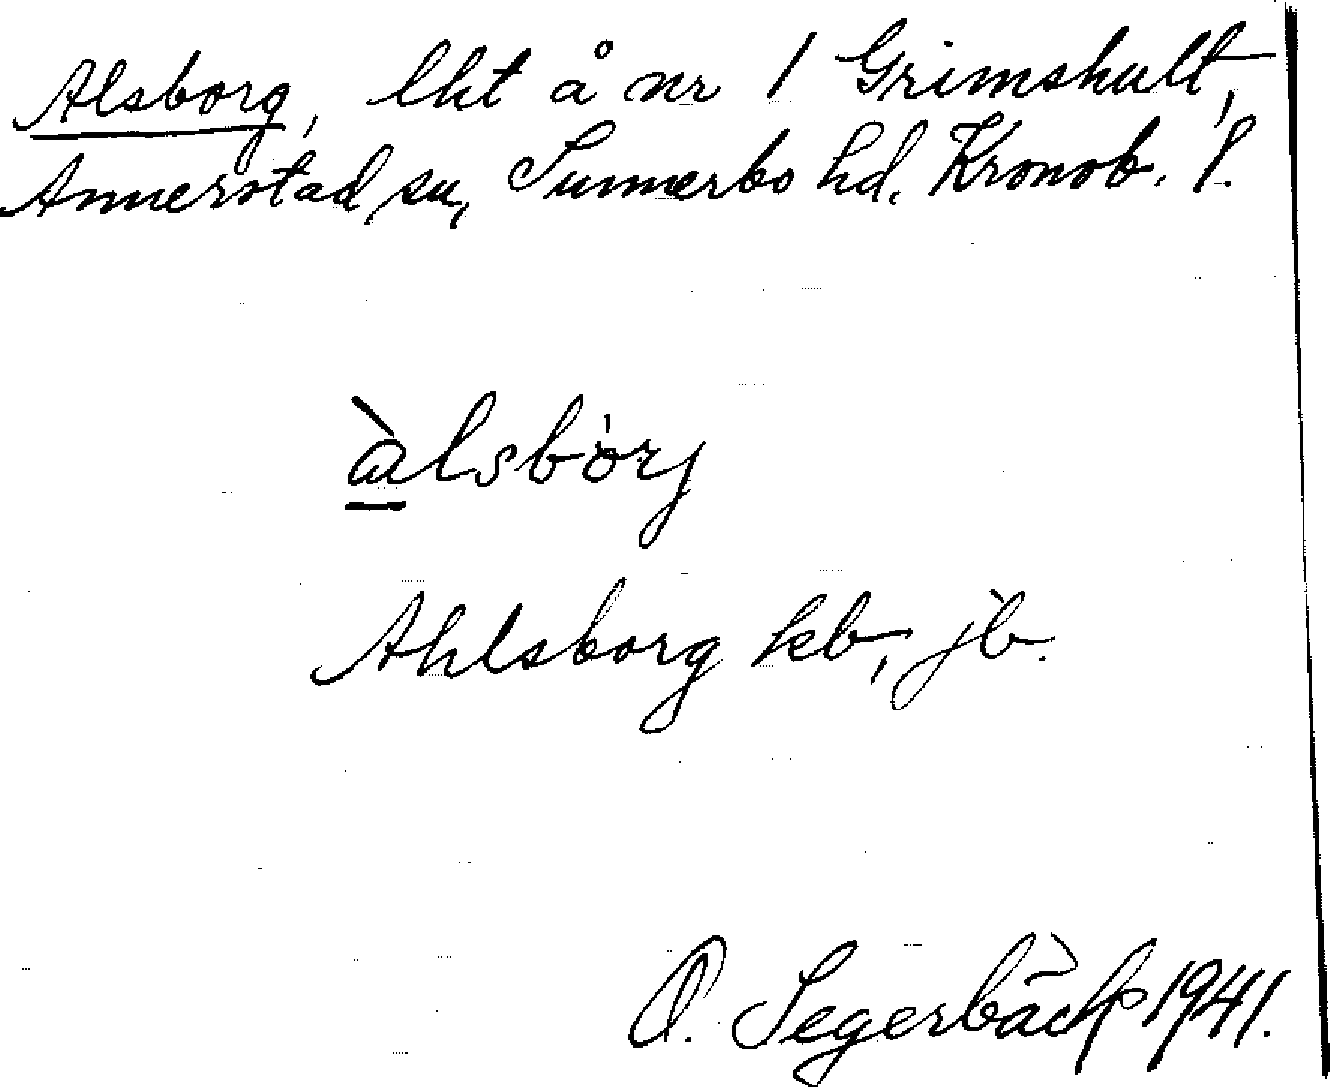 Alsborg, lht å nr 1 Grimshult,
Annerstad sn, Sunnerbo hd. Kronob. l.
àlsbȯrj
Ahlsborg kb, jb.
O. Segerbäck 1941.